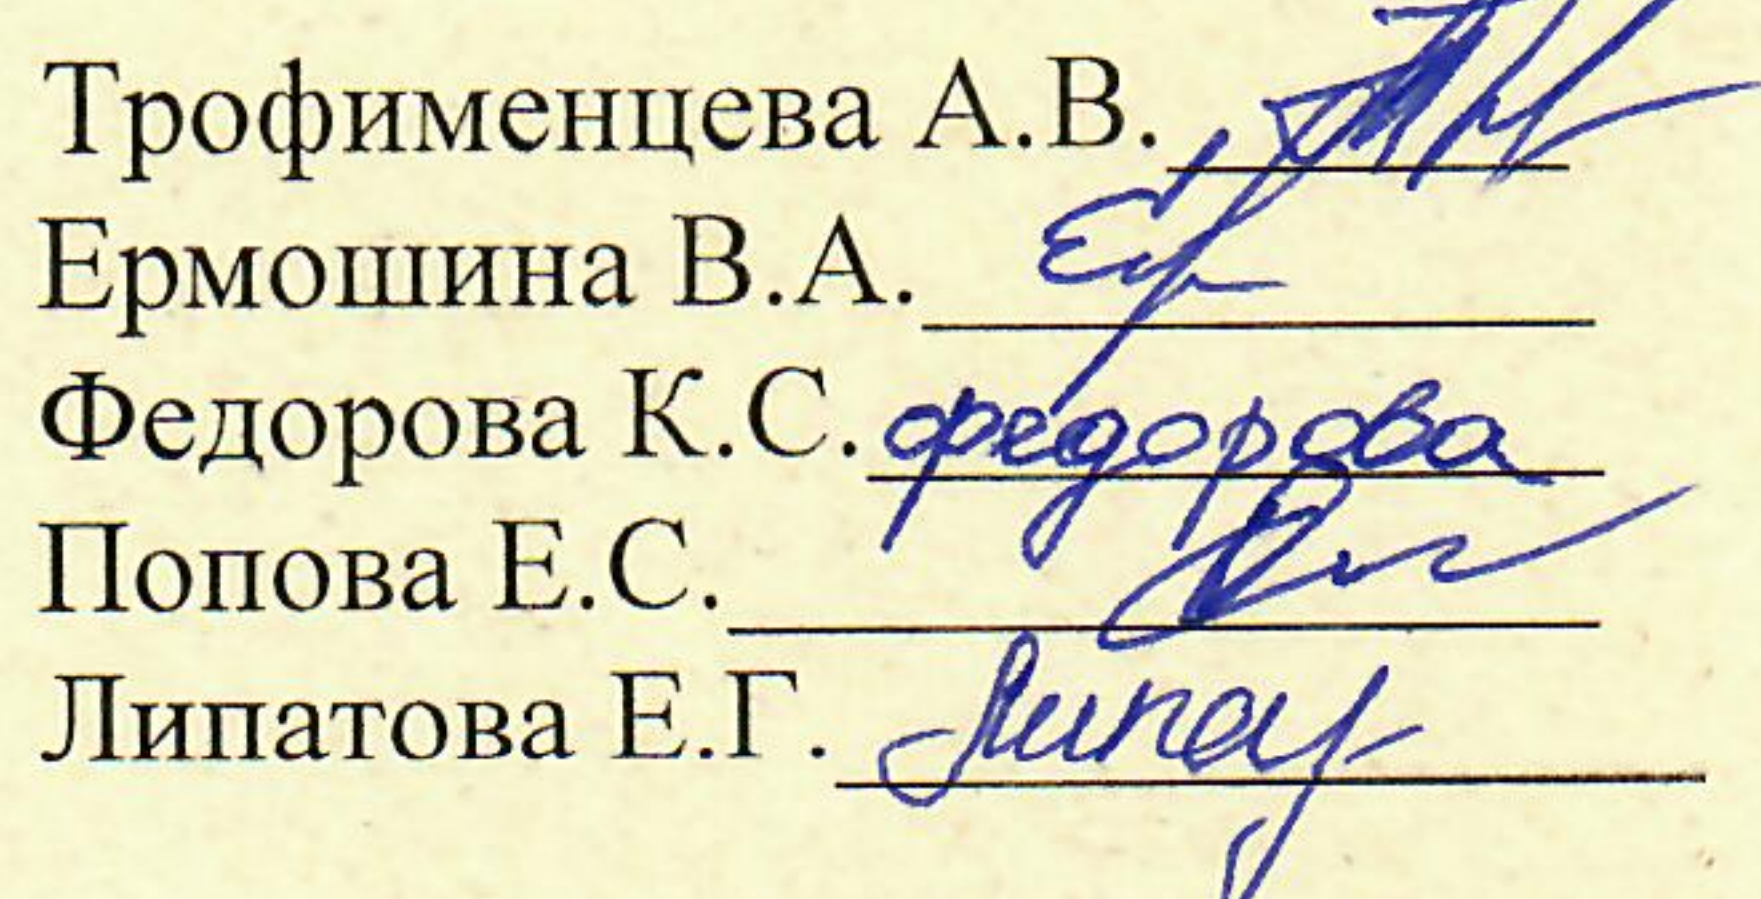 Трофименцева А.В.
Ермошина В.А.
Федорова К.С. федорова
Попова Е.С.
Липатова Е.Г.